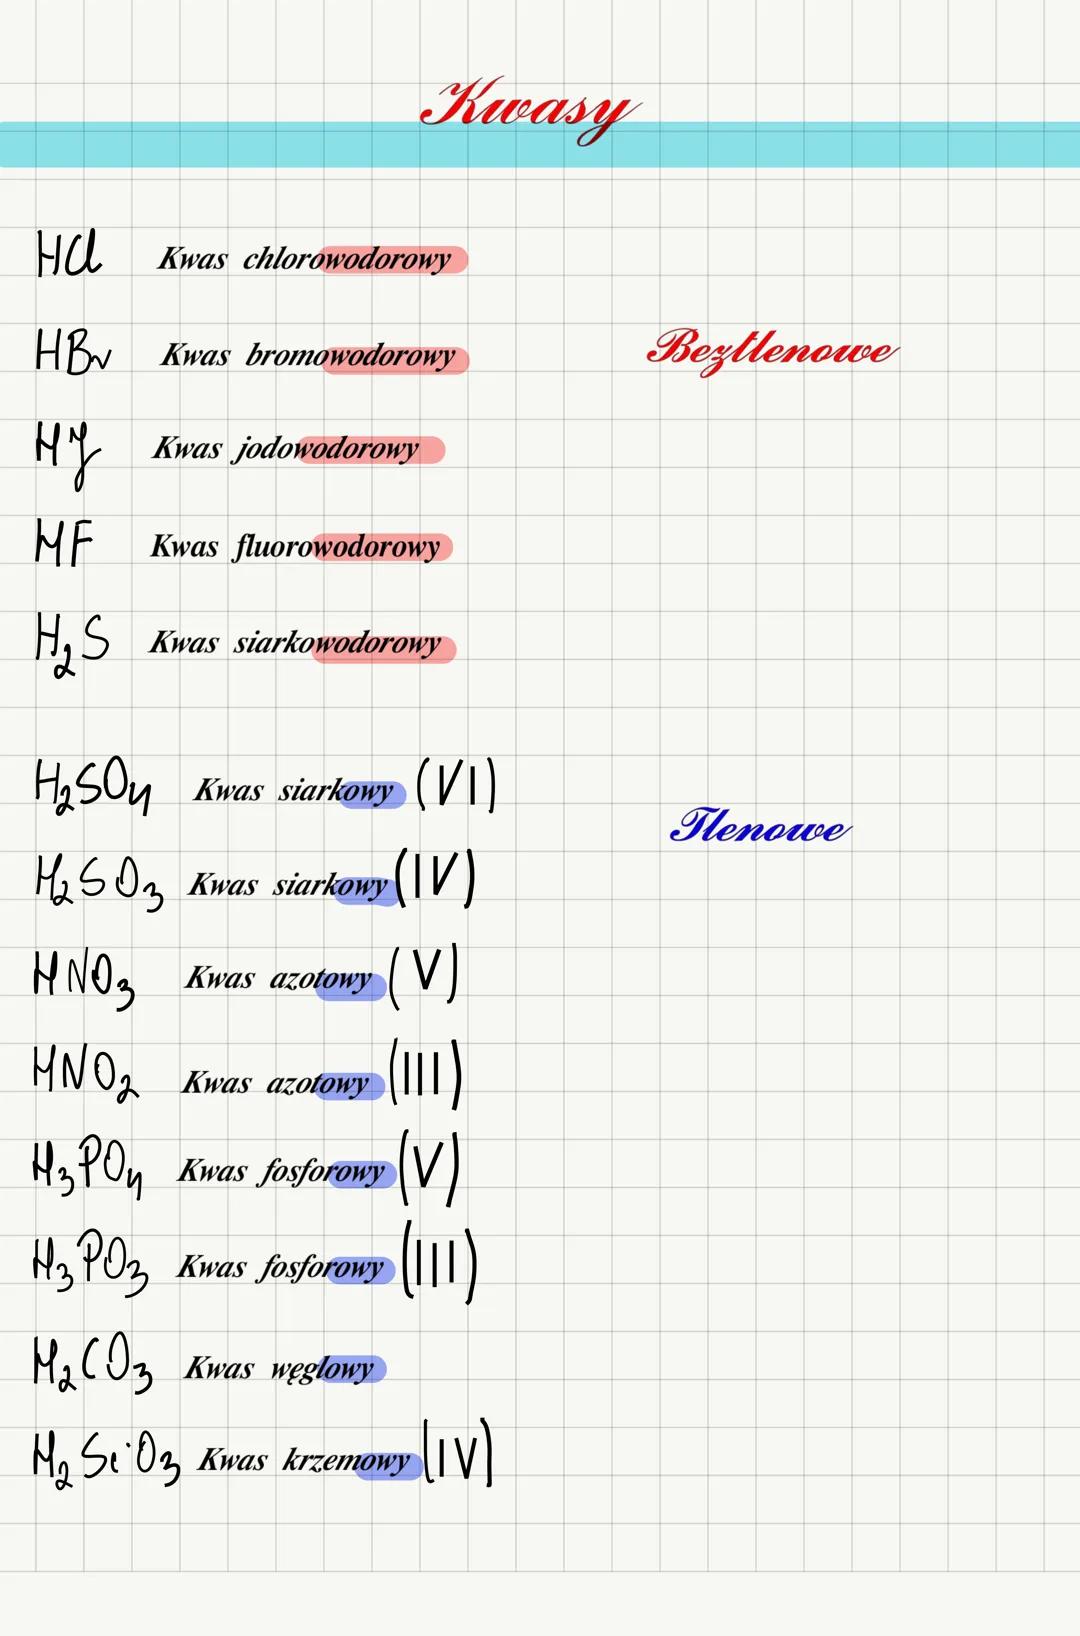 Kwasy
HCl Kwas chlorowodorowy
HBr Kwas bromowodorowy
Beztlenowe
HJ Kwas jodowodorowy
HF Kwas fluorowodorowy
H₂S Kwas siarkowodorowy
H₂SO₄ Kwas siarkowy (VI)
Tlenowe
H₂SO₃ Kwas siarkowy (IV)
HNO₃ Kwas azotowy (V)
HNO₂ Kwas azotowy (III)
H₃PO₄ Kwas fosforowy (V)
H₃PO₃ Kwas fosforowy (III)
H₂CO₃ Kwas węglowy
H₂SiO₃ Kwas krzemowy (IV)